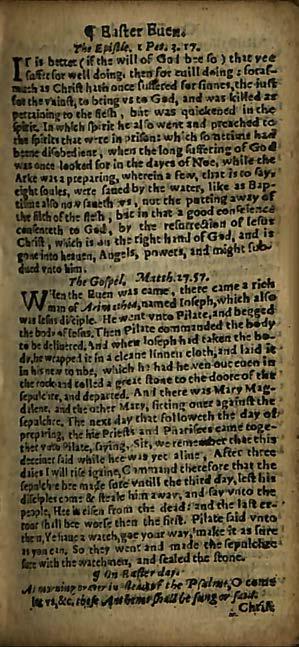 ¶ Easter Euen.
The Epistle. 1 Pet. 3. 17.
IT is better (if the will of God bee so) that yee
suffer for well doing, then for euill doing: foras-
much as Christ hath once suffered for sinnes, the iust
for the vniust, to bring vs to God, and was killed as
pertaining to the flesh, but was quickened in the
spirit. In which spirit he also went and preached to
the spirits that were in prison: which sometime had
beene disobedient, when the long suffering of God
was once looked for in the dayes of Noe, while the
Arke was a preparing, wherein a few, that is to say,
eight soules, were saued by the water, like as Bap-
tisme also now saueth vs, not the putting away of
the filth of the flesh, but in that a good conscience
consenteth to God, by the resurrection of Iesus
Christ, which is on the right hand of God, and is
gone into heauen, Angels, powers, and might sub-
dued vnto him.
The Gospel. Matth. 27. 57.
WHen the Euen was came, there came a rich
man of Arimathea, named Ioseph, which also
was Iesus disciple. He went vnto Pilate, and begged
the body of Iesus. Then Pilate commanded the body
to be deliuered. And when Ioseph had taken the bo-
dy, he wrapped it in a cleane linnen cloth, and laid it
in his new tombe, which he had hewen out euen in
the rock, and rolled a great stone to the doore of the
sepulchre, and departed. And there was Mary Mag-
dalene, and the other Mary, sitting ouer against the
sepulchre. The next day that followeth the day of
preparing, the hie Priests and Pharisees came toge-
ther vnto Pilate, saying, Sir, we remember that this
deceiuer said while hee was yet aliue, After three
daies I will rise againe, Command therefore that the
sepulchre bee made sure vntill the third day, lest his
disciples come & steale him away, and say vnto the
people, Hee is risen from the dead: and the last er-
rour shall bee worse then the first. Pilate said vnto
them, Ye haue a watch, goe your way, make it as sure
as you can. So they went and made the sepulchre
sure with the watchmen, and sealed the stone.
¶ On Easter day.
At morning prayer in stead of the Psalme, O come
let vs, &c. these Anthemes shall be sung or said.
Christ